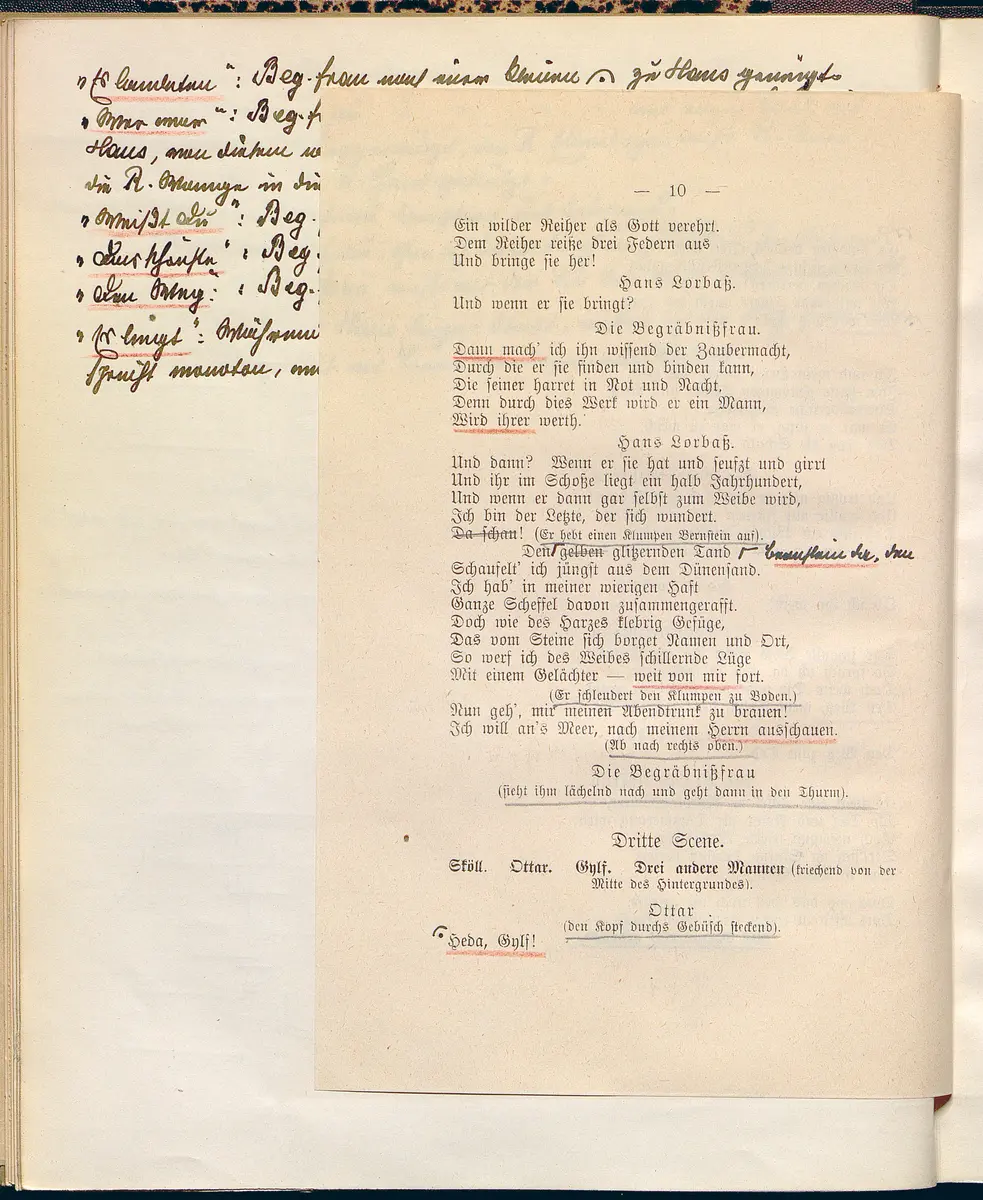 „Es landeten“: Beg. frau mit einer kleinen zu Hans geneigt.
„Wer war“: Beg.
Hans, von diesem
die R. Wange in die
„Weißt du“: Beg.
„Beg.
„Den Weg“: Beg.
„Es liegt“: Während
spricht monoton,
— 10 —
Ein wilder Reiher als Gott verehrt.
Dem Reiher reiße drei Federn aus
Und bringe sie her!
Hans Lorbaß.
Und wenn er sie bringt?
Die Begräbnißfrau.
Dann mach' ich ihn wissend der Zaubermacht,
Durch die er sie finden und binden kann,
Die seiner harret in Not und Nacht,
Denn durch dies Werk wird er ein Mann,
Wird ihrer werth.
Hans Lorbaß.
Und dann? Wenn er sie hat und seufzt und girrt
Und ihr im Schoße liegt ein halb Jahrhundert,
Und wenn er dann gar selbst zum Weibe wird,
Ich bin der Letzte, der sich wundert.
Da schau! (Er hebt einen Klumpen Bernstein auf).
Den gelben glitzernden Tand Bernstein da, den
Schaufelt' ich jüngst aus dem Dünensand.
Ich hab' in meiner wierigen Haft
Ganze Scheffel davon zusammengerafft.
Doch wie des Harzes klebrig Gefüge,
Das vom Steine sich borget Namen und Ort,
So werf ich des Weibes schillernde Lüge
Mit einem Gelächter — weit von mir fort.
(Er schleudert den Klumpen zu Boden.)
Nun geh', mir meinen Abendtrunk zu brauen!
Ich will an's Meer, nach meinem Herrn ausschauen.
(Ab nach rechts oben.)
Die Begräbnißfrau
(sieht ihm lächelnd nach und geht dann in den Thurm).
Dritte Scene.
Sköll. Ottar. Gylf. Drei andere Mannen (kriechend von der
Mitte des Hintergrundes).
Ottar
(den Kopf durchs Gebüsch steckend).
Heda, Gylf!